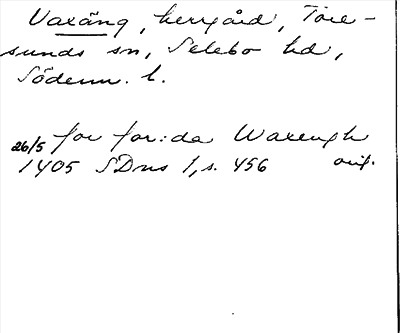 Vaxäng, herrgård, Tore-
sunds sn, Selebo hd,
Söderm. l.
26/5 for for:da Waxengh
1405 SDns 1, s. 456 orig.